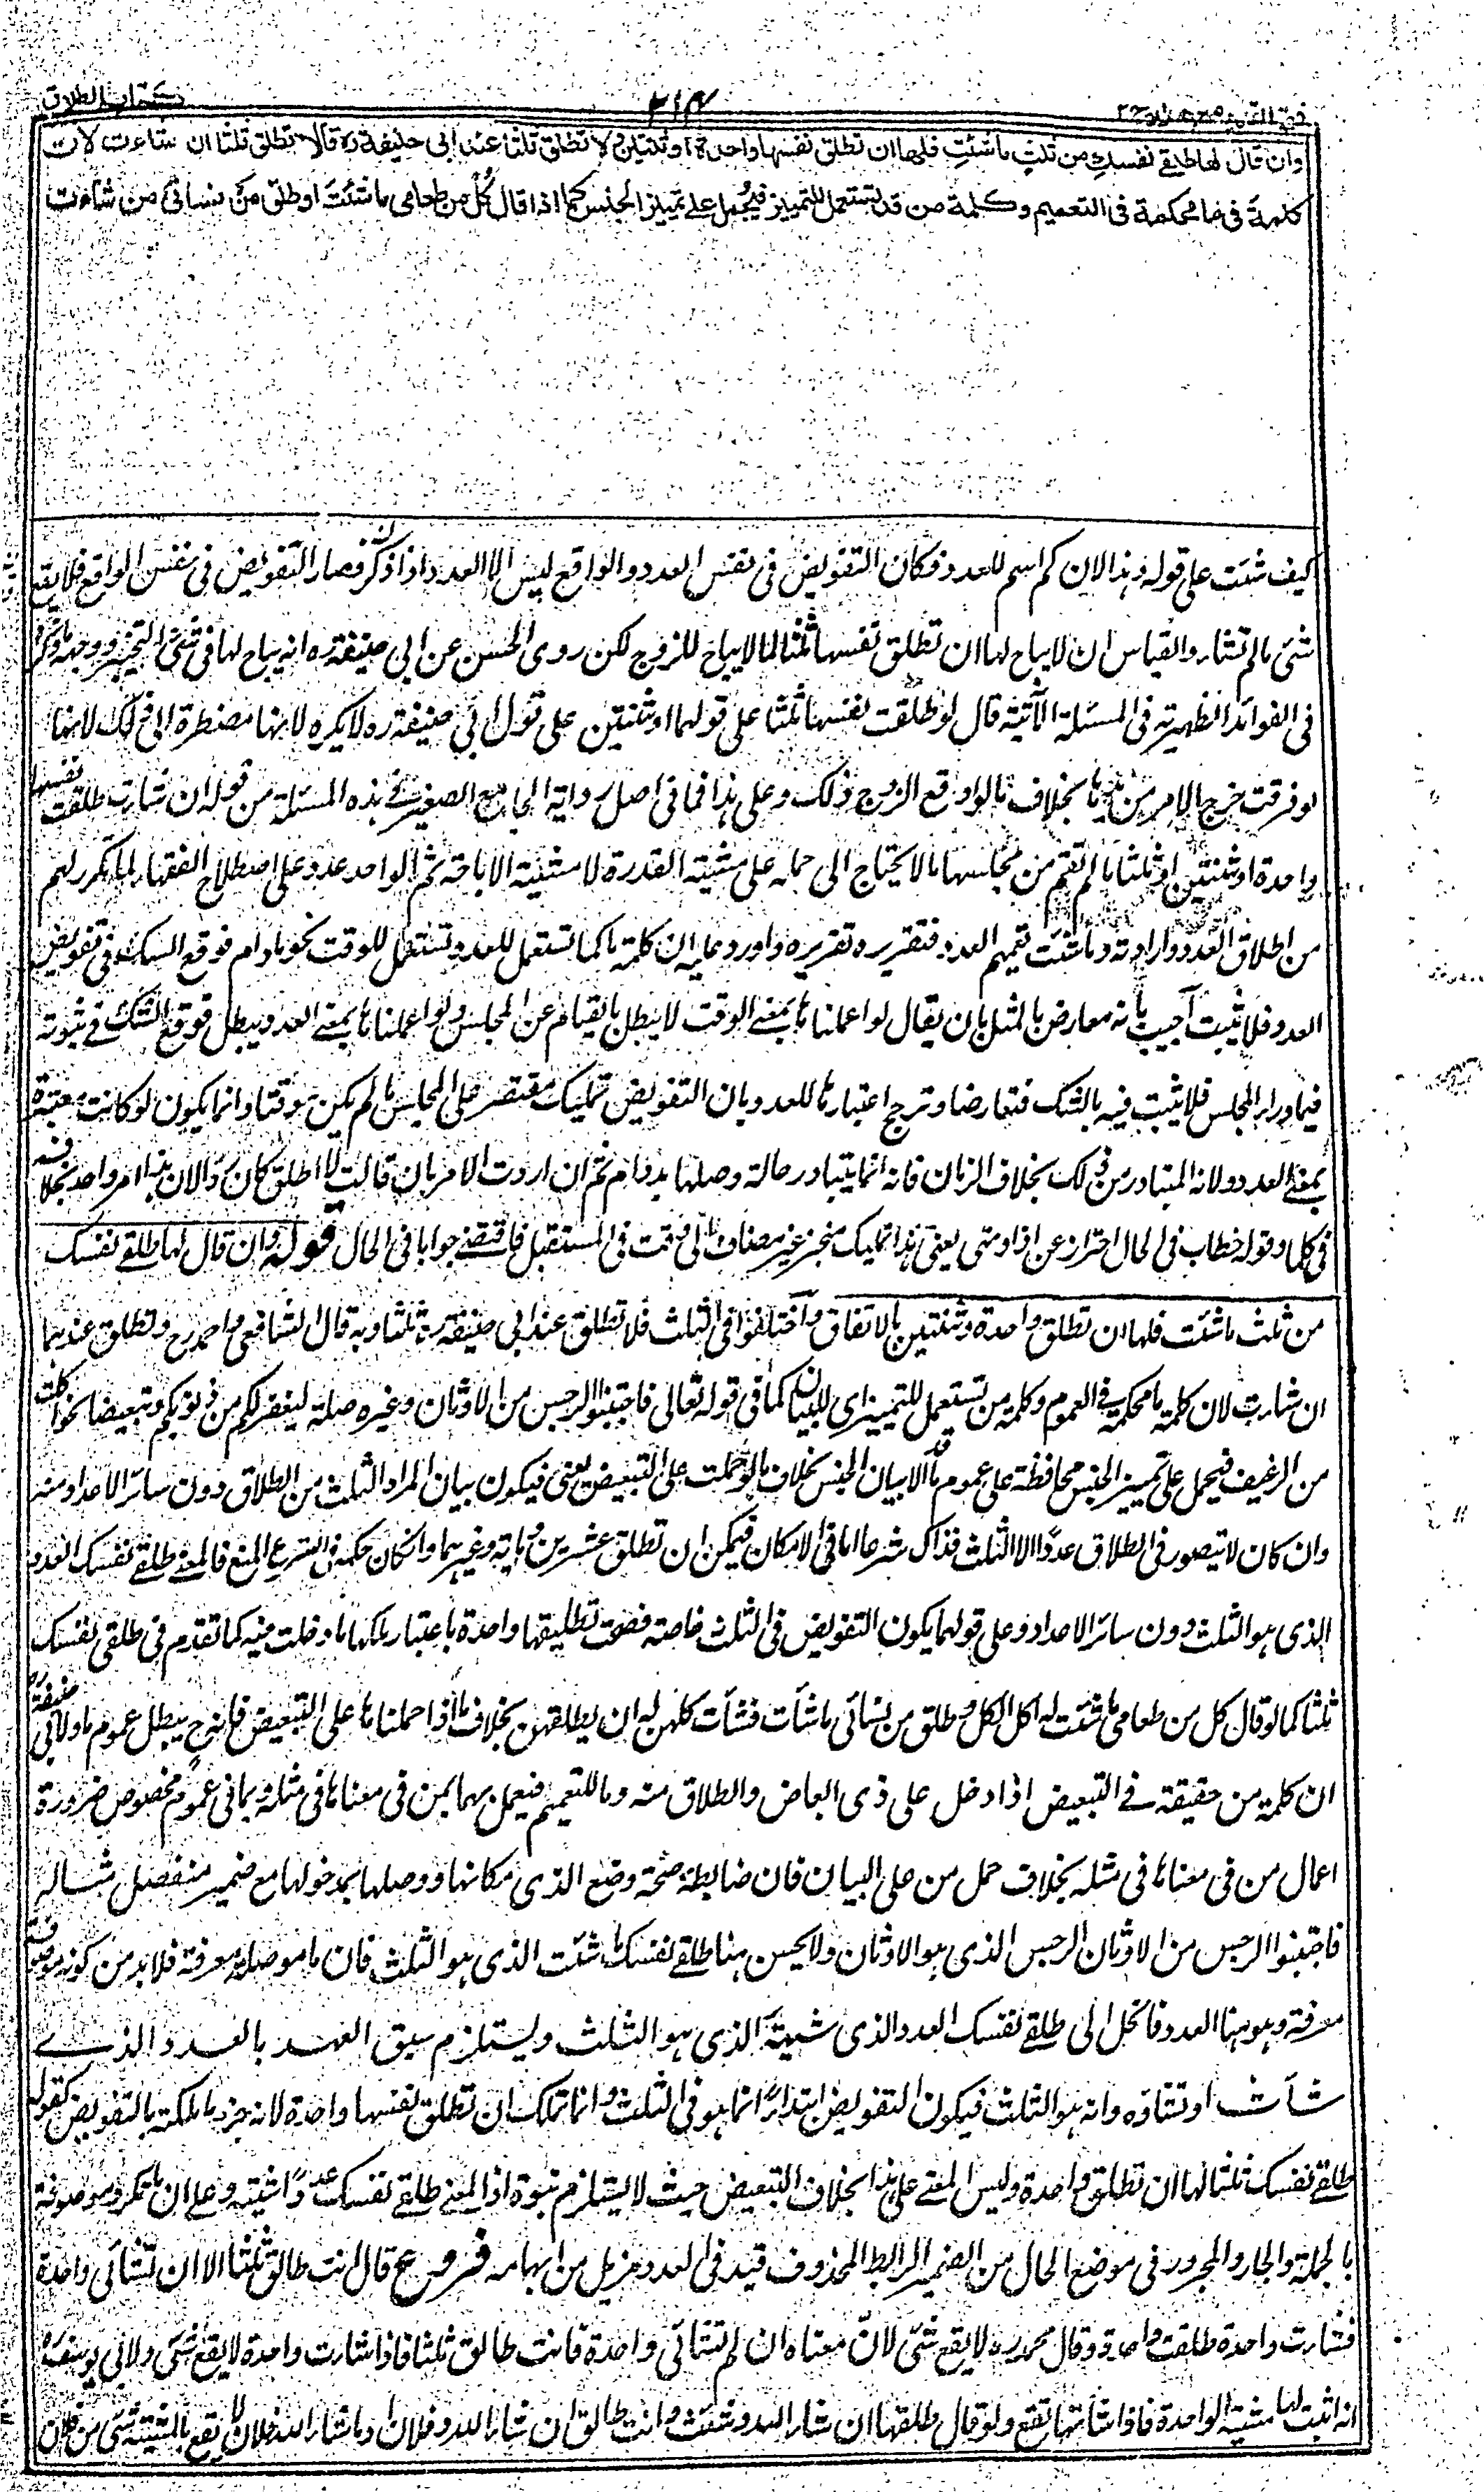 فتح القدير مع هدايه ج ٢
٣١٤
كتاب الطلاق
وان قال لها طلقي نفسكِ من ثلثٍ ما شئتِ فلها ان تطلق نفسها واحدة او ثنتين ولا تطلق ثلثا عند ابي حنيفة ره وقالا تطلق ثلثا ان شاءت لان
كلمة ما محكمة فى التعميم وكلمة من قد تستعمل للتمييز فيحمل على تمييز الجنس كما اذا قال كُل من طعامى ما شئتَ او طلق من نسائى من شاءت
كيف شئت على قوله وهذا لان كم اسم للعدد فكان التفويض فى نفس العدد والواقع ليس الا العدد اذا ذكر فصار التفويض فى نفس الواقع فلا يقع
شئ ما لم تشأ والقياس ان لا يباح لها ان تطلق نفسها ثلثا كما لا يباح للزوج لكن روى الحسن عن ابى حنيفة ره انه يباح لها فى شئ التخيير ووجهه ما ذكر
فى الفوائد الظهيرية فى المسئلة الآتية قال لو طلقت نفسها ثلثا على قولهما او ثنتين على قول ابي حنيفة ره لا يكره لانها مضطرة الى ذلك لانها
لو فرقت خرج الامر من يدها بخلاف ما لو اوقع الزوج ذلك وعلى هذا فما فى اصل رواية الجامع الصغير فى هذه المسئلة من قوله ان شاءت طلقت نفسها
واحدة او ثنتين او ثلثا ما لم تقم من مجلسها مما لا يحتاج الى حمله على مشية القدرة لا مشية الاباحة ثم الواحد عدد على اصطلاح الفقهاء لما تكرر لهم
من اطلاق العدد وارادته وما شئت تعميم العدد فتقريره تقريره واورد عليه ان كلمة ما كما تستعمل للعدد تستعمل للوقت نحو ما دام فوقع الشك فى تفويض
العدد فلا يثبت اجيب بانه معارض بالمثل بان يقال لو اعملناها بمعنى الوقت لا يبطل بالقيام عن المجلس ولو اعملناها بمعنى العدد يبطل فوقع الشك فى ثبوته
فيما وراء المجلس فلا يثبت فيه بالشك فتعارضا وترجح اعتبارها للعدد بان التفويض تمليك مقتصر على المجلس ما لم يكن موقتا وانما يكون لو كانت معتبرة
بمعنى العدد ولانه المتبادر من ذلك بخلاف الزمان فانه انما يتبادر حالة وصلها بدوام ثم ان اردت الامر بان قالت لا اطلق كان ردا لان هذا امر واحد بخلافه
فى كلما وقوله خطاب فى الحال احتراز عن اذا ومتى يعنى هذا تمليك منجز غير مضاف الى وقت فى المستقبل فاقتضى جوابا فى الحال قوله وان قال لها طلقى نفسك
من ثلث ما شئت فلها ان تطلق واحدة وثنتين بالاتفاق واختلفوا فى الثلث فلا تطلق عند ابى حنيفة ره ثلثا وبه قال الشافعى واحمد رح وتطلق عندهما
ان شاءت لان كلمة ما محكمة فى العموم وكلمة من تستعمل للتمييز اى للبيان كما فى قوله تعالى فاجتنبوا الرجس من الاوثان وغيره صلة ليغفر لكم من ذنوبكم وتبعيضا نحو اكلت
من الرغيف فيحمل على تمييز الجنس محافظة على عموم ما الابيان الجنس بخلاف ما لو حملت على التبعيض يعنى فيكون بيان المراد الثلث من الطلاق دون سائر الاعداد منه
وان كان لا يتصور فى الطلاق عددا الا الثلث فذاك شرعا اما فى الامكان فيمكن ان تطلق عشرين ومائة وغيرهما وان كان حكمه فى الشرع المنع فالمعنى طلقى نفسك العدد
الذى هو الثلث دون سائر الاعداد وعلى قولهما يكون التفويض فى الثلث خاصة فصحت تطليقها واحدة باعتبار ملكها ما دخلت فيه كما تقدم فى طلقى نفسك
ثلثا كما لو قال كل من طعامى ما شئت له اكل الكل وطلق من نسائى ما شأت فشأت كلهن له ان يطلقهن بخلاف ما اذا حملناها على التبعيض فانه ح يبطل عموم ما ولابى حنيفة ره
ان كلمة من حقيقة فى التبعيض اذا دخل على ذى ابعاض والطلاق منه وما للتعميم فيعمل بهما بمن فى معناها فى مثله وبما فى عموم مخصوص ضرورة
اعمال من فى معناها فى مثله بخلاف حمل من على البيان فان ضابطة صحة وضع الذى مكانها ووصلها بمدخولها مع ضمير منفصل مثاله
فاجتنبوا الرجس من الاوثان الرجس الذى هو الاوثان ولا يحسن هنا طلقى نفسك ما شئت الذى هو الثلث فان ما موصولة معرفة فلا بد من كونه موصوفه
معرفة وهو ههنا العدد فانحل الى طلقى نفسك العدد الذى شيته الذى هو الثلث ويستلزم سبق العهد بالعدد الذى
شأت او تشاؤه وانه هو الثلث فيكون التفويض ابتداءً انما هو فى الثلث وانما تملك ان تطلق نفسها واحدة لانه جزء ما ملكته بالتفويض كقوله
طلقى نفسك ثلثا لها ان تطلق واحدة وليس المعنى على هذا بخلاف التبعيض حيث لا يستلزم ثبوته اذ المعنى طلقى نفسك عددا شيته وعلى ان ما نكرة موصوفة
بالجملة والجار والمجرور فى موضع الحال من الضمير الرابط المحذوف قيد فى العدد مزيل من ابهامه فروع قال انت طالق ثلثا الا ان تشائى واحدة
فشاءت واحدة طلقت واحدة وقال محمد ره لا يقع شئ لان معناه ان لم تشائى واحدة فانت طالق ثلثا فاذا شاءت واحدة لا يقع شئ ولابى يوسف ره
انه اثبت لها مشية الواحدة فاذا شاتها تقع ولو قال طلقها ان شاء الله وشئت وانت طالق ان شاء الله وفلان او ما شاء الله فلان لا يقع بالمشية شئ من فلان